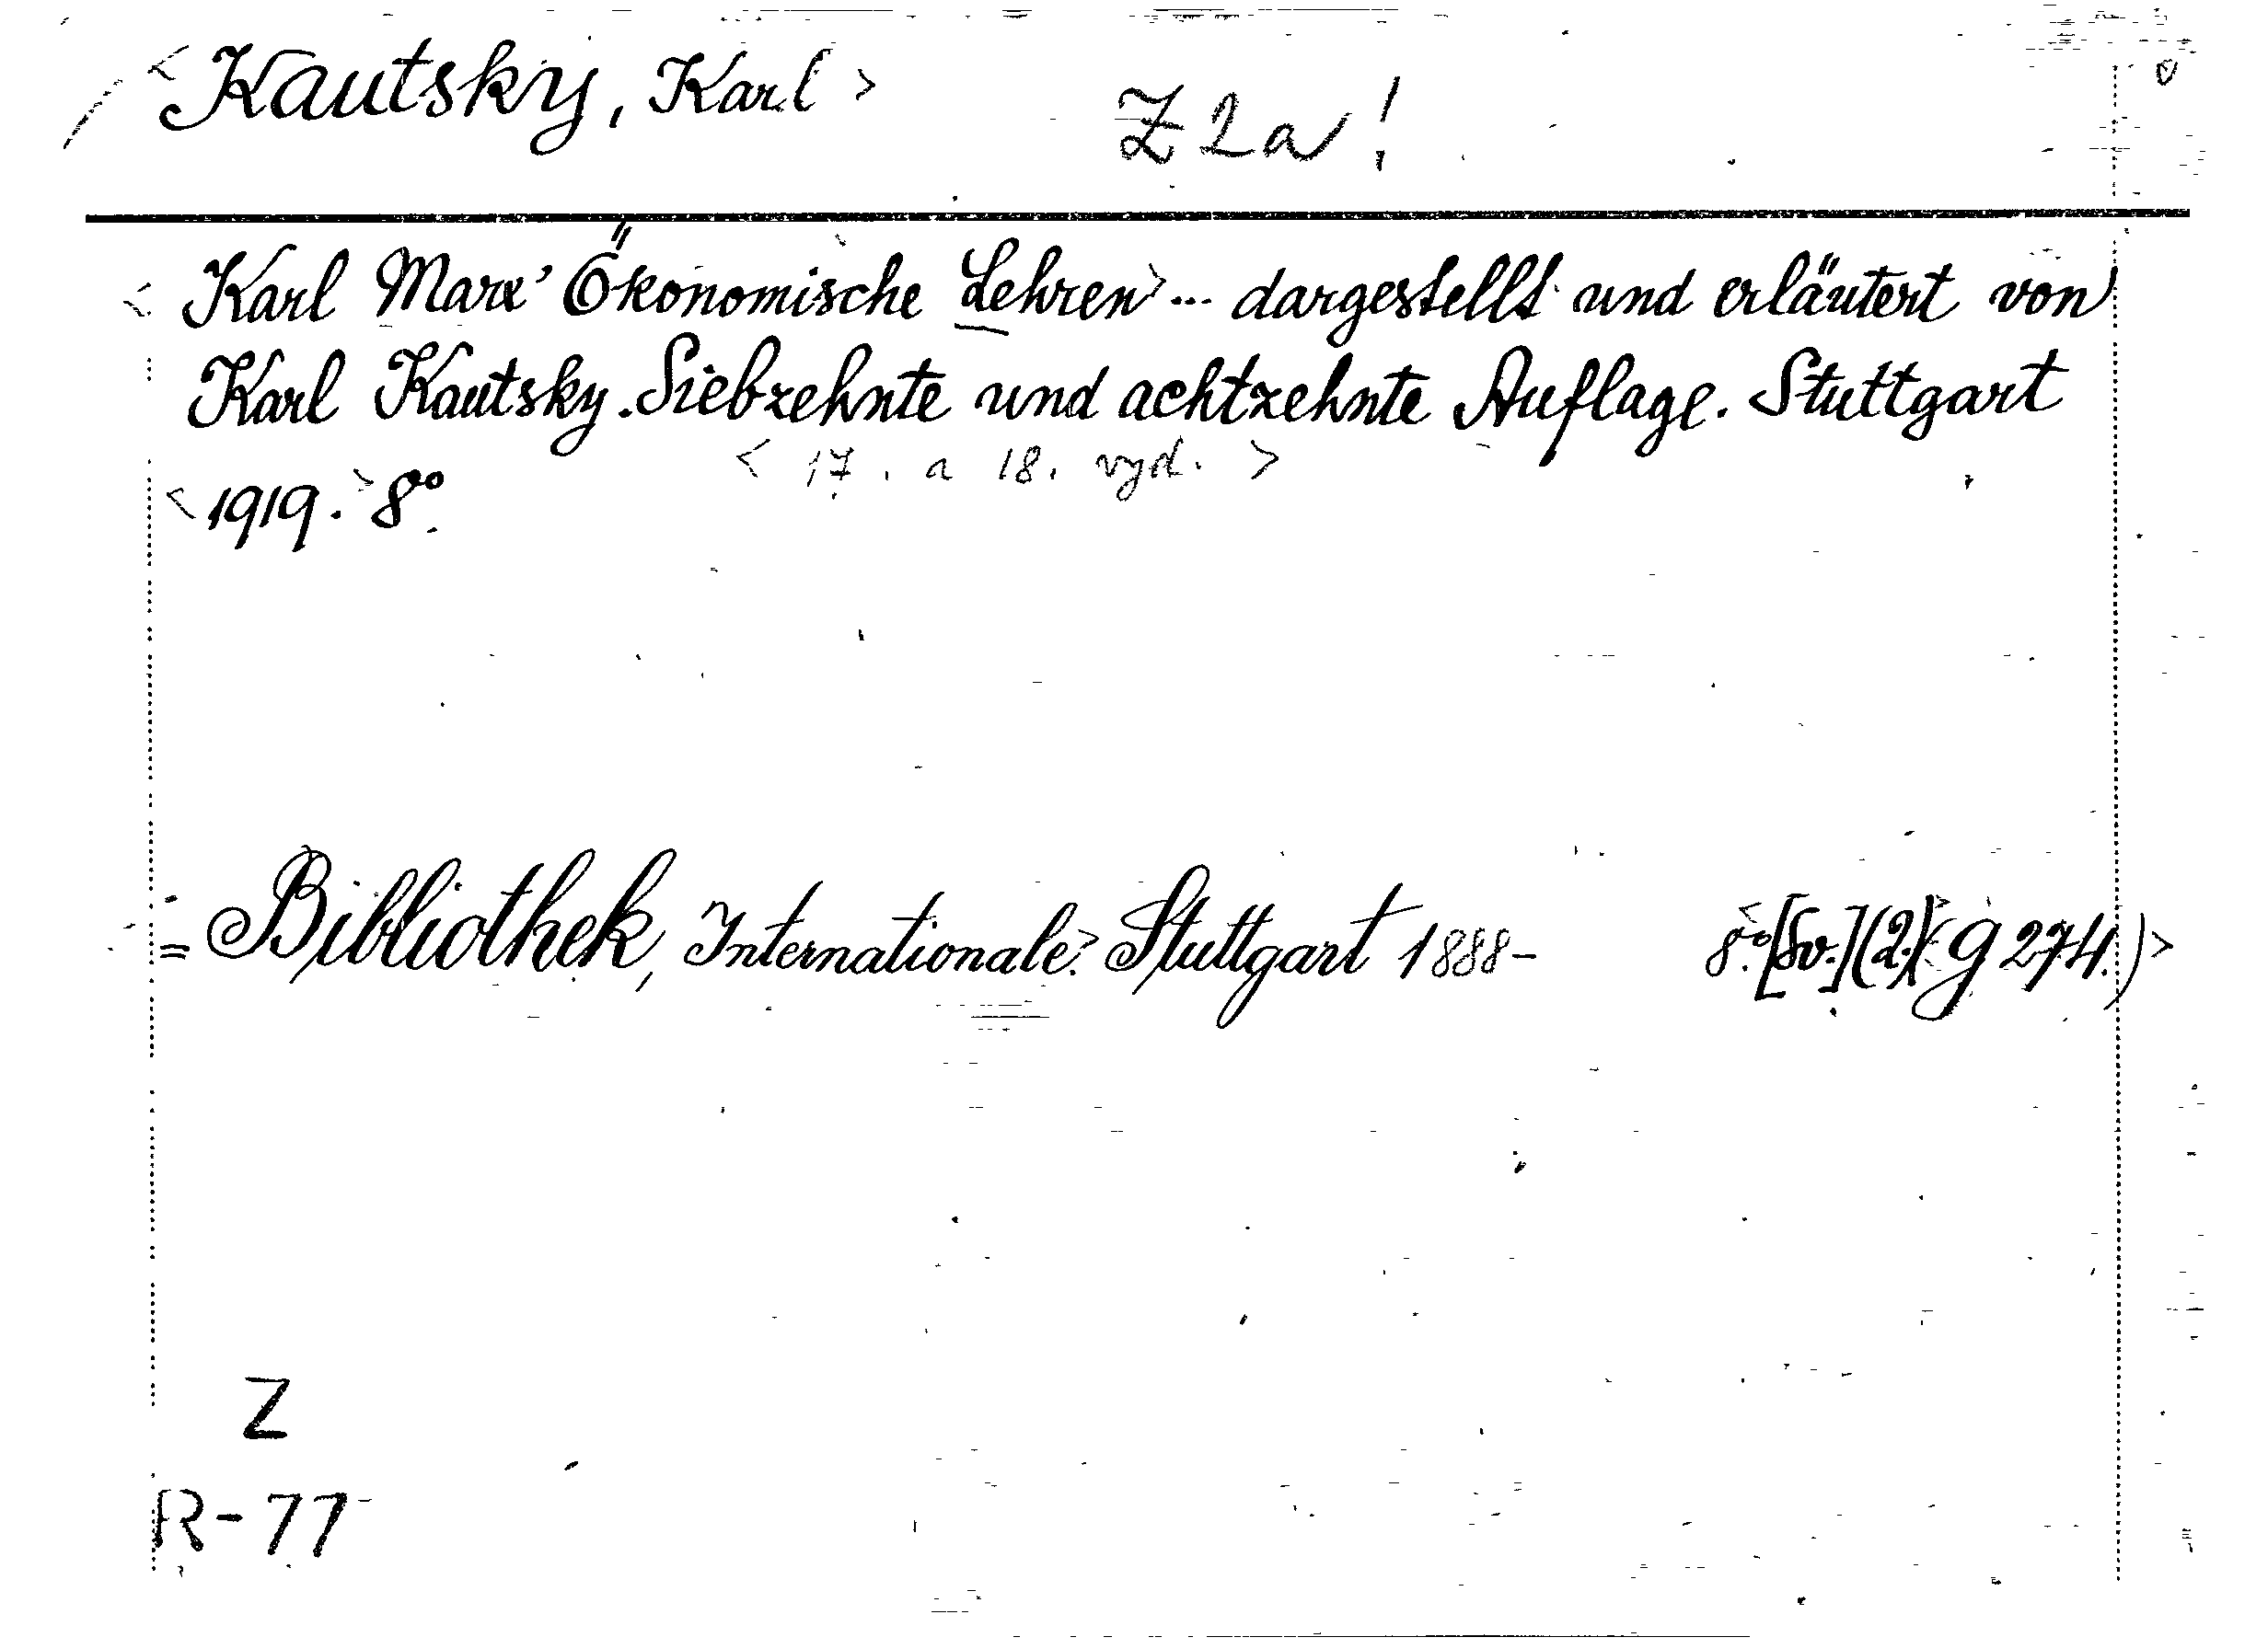 <Kautsky, Karl>
Z 2a!
<Karl Marx' Ökonomische Lehren> ... dargestellt und erläutert von
Karl Kautsky. Siebzehnte und achtzehnte Auflage. Stuttgart
<17. a 18. vyd.>
<1919.> 8°.
= Bibliothek, Internationale.> Stuttgart 1888- 8°. <[Sv.] (2.)> <(G 274.)>
Z
R-77